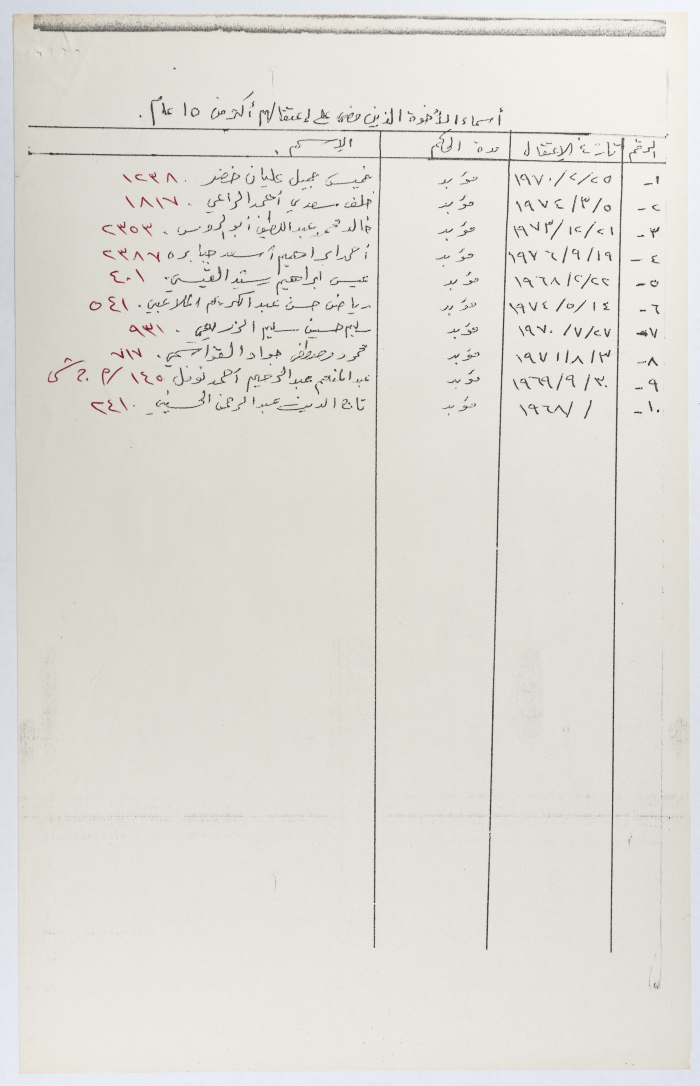 أسماء الأخوة الذين مضى على إعتقالهم أكثر من ١٥ عام.
الرقم تاريخ الإعتقال مدة الحكم الإسم
١- ١٩٧٠/٢/٢٥ مؤبد خميس جميل عليان خضر . ١٢٣٨
٢- ١٩٧٤/٣/٥ مؤبد خلف سعدي أحمد الراعي . ١٨١٧
٣- ١٩٧٣/١٢/٢١ مؤبد خالد محمد عبد اللطيف أبو الروس . ٢٣٥٣
٤- ١٩٧٦/٩/١٩ مؤبد أحمد ابراهيم أسعد جبابره ٢٣٨٧
٥- ١٩٦٨/٢/٢٢ مؤبد عيسى ابراهيم رشيد القيسي . ٤٠١
٦- ١٩٧٤/٥/١٤ مؤبد رياض حسن عبد الكريم الملاعبي . ٥٤١
٧- ١٩٧٠/٧/٢٧ مؤبد سليم حسين سليم . ٩٣١
٨- ١٩٧١/٨/٣ مؤبد محمود مصطفى جواد القواسمي . ٧١٧
٩- ١٩٦٩/٩/٣٠ مؤبد عبد المنعم عبد الرحيم أحمد نوفل ١٤٥
١٠- ١٩٦٨/ / مؤبد تاج الدين عبد الرحمن الحسيني . ٢٤١